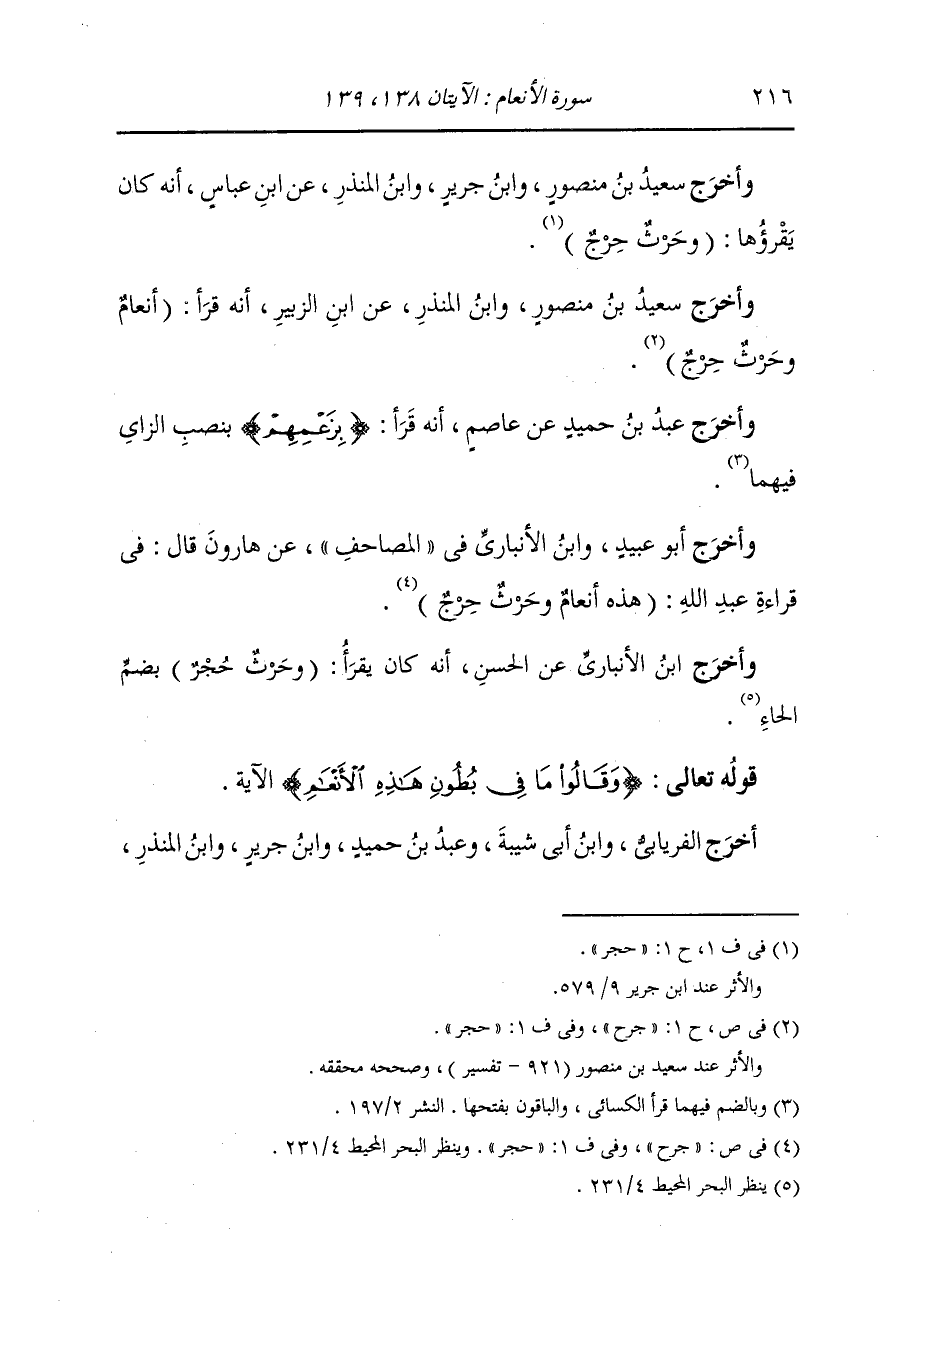 ٢١٦ سورة الأنعام : الآيتان ١٣٨ ، ١٣٩
وأخرَج سعيدُ بنُ منصورٍ ، وابنُ جريرٍ ، وابنُ المنذرِ ، عن ابنِ عباسٍ ، أنه كان
يَقْرؤُها : ( وحَرْثٌ حِرْجٌ )(١) .
وأخرَج سعيدُ بنُ منصورٍ ، وابنُ المنذرِ ، عن ابنِ الزبيرِ ، أنه قرَأ : ( أنعامٌ
وحَرْثٌ حِرْجٌ )(٢) .
وأخرَج عبدُ بنُ حميدٍ عن عاصمٍ ، أنه قَرَأ : ﴿ بِزَعْمِهِمْ ﴾ بنصبِ الزاىِ
فيهما(٣) .
وأخرَج أبو عبيدٍ ، وابنُ الأنبارىِّ فى « المصاحفِ » ، عن هارونَ قال : فى
قراءةِ عبدِ اللهِ : ( هذه أنعامٌ وحَرْثٌ حِرْجٌ )(٤) .
وأخرَج ابنُ الأنبارىِّ عن الحسنِ ، أنه كان يقرَأُ : ( وحَرْثٌ حُجْرٌ ) بضمِّ
الحاءِ(٥) .
قولُه تعالى : ﴿ وَقَالُواْ مَا فِى بُطُونِ هَـٰذِهِ ٱلْأَنْعَـٰمِ ﴾ الآية .
أخرَج الفريابىُّ ، وابنُ أبى شيبةَ ، وعبدُ بنُ حميدٍ ، وابنُ جريرٍ ، وابنُ المنذرِ ،
(١) فى ف ١، ح ١: « حجر » .
والأثر عند ابن جرير ٩/ ٥٧٩.
(٢) فى ص ، ح ١: « جرح » ، وفى ف ١: « حجر » .
والأثر عند سعيد بن منصور (٩٢١ - تفسير ) ، وصححه محققه .
(٣) وبالضم فيهما قرأ الكسائى ، والباقون بفتحها . النشر ٢/ ١٩٧ .
(٤) فى ص : « جرح » ، وفى ف ١: « حجر » . وينظر البحر المحيط ٤/ ٢٣١ .
(٥) ينظر البحر المحيط ٤/ ٢٣١ .